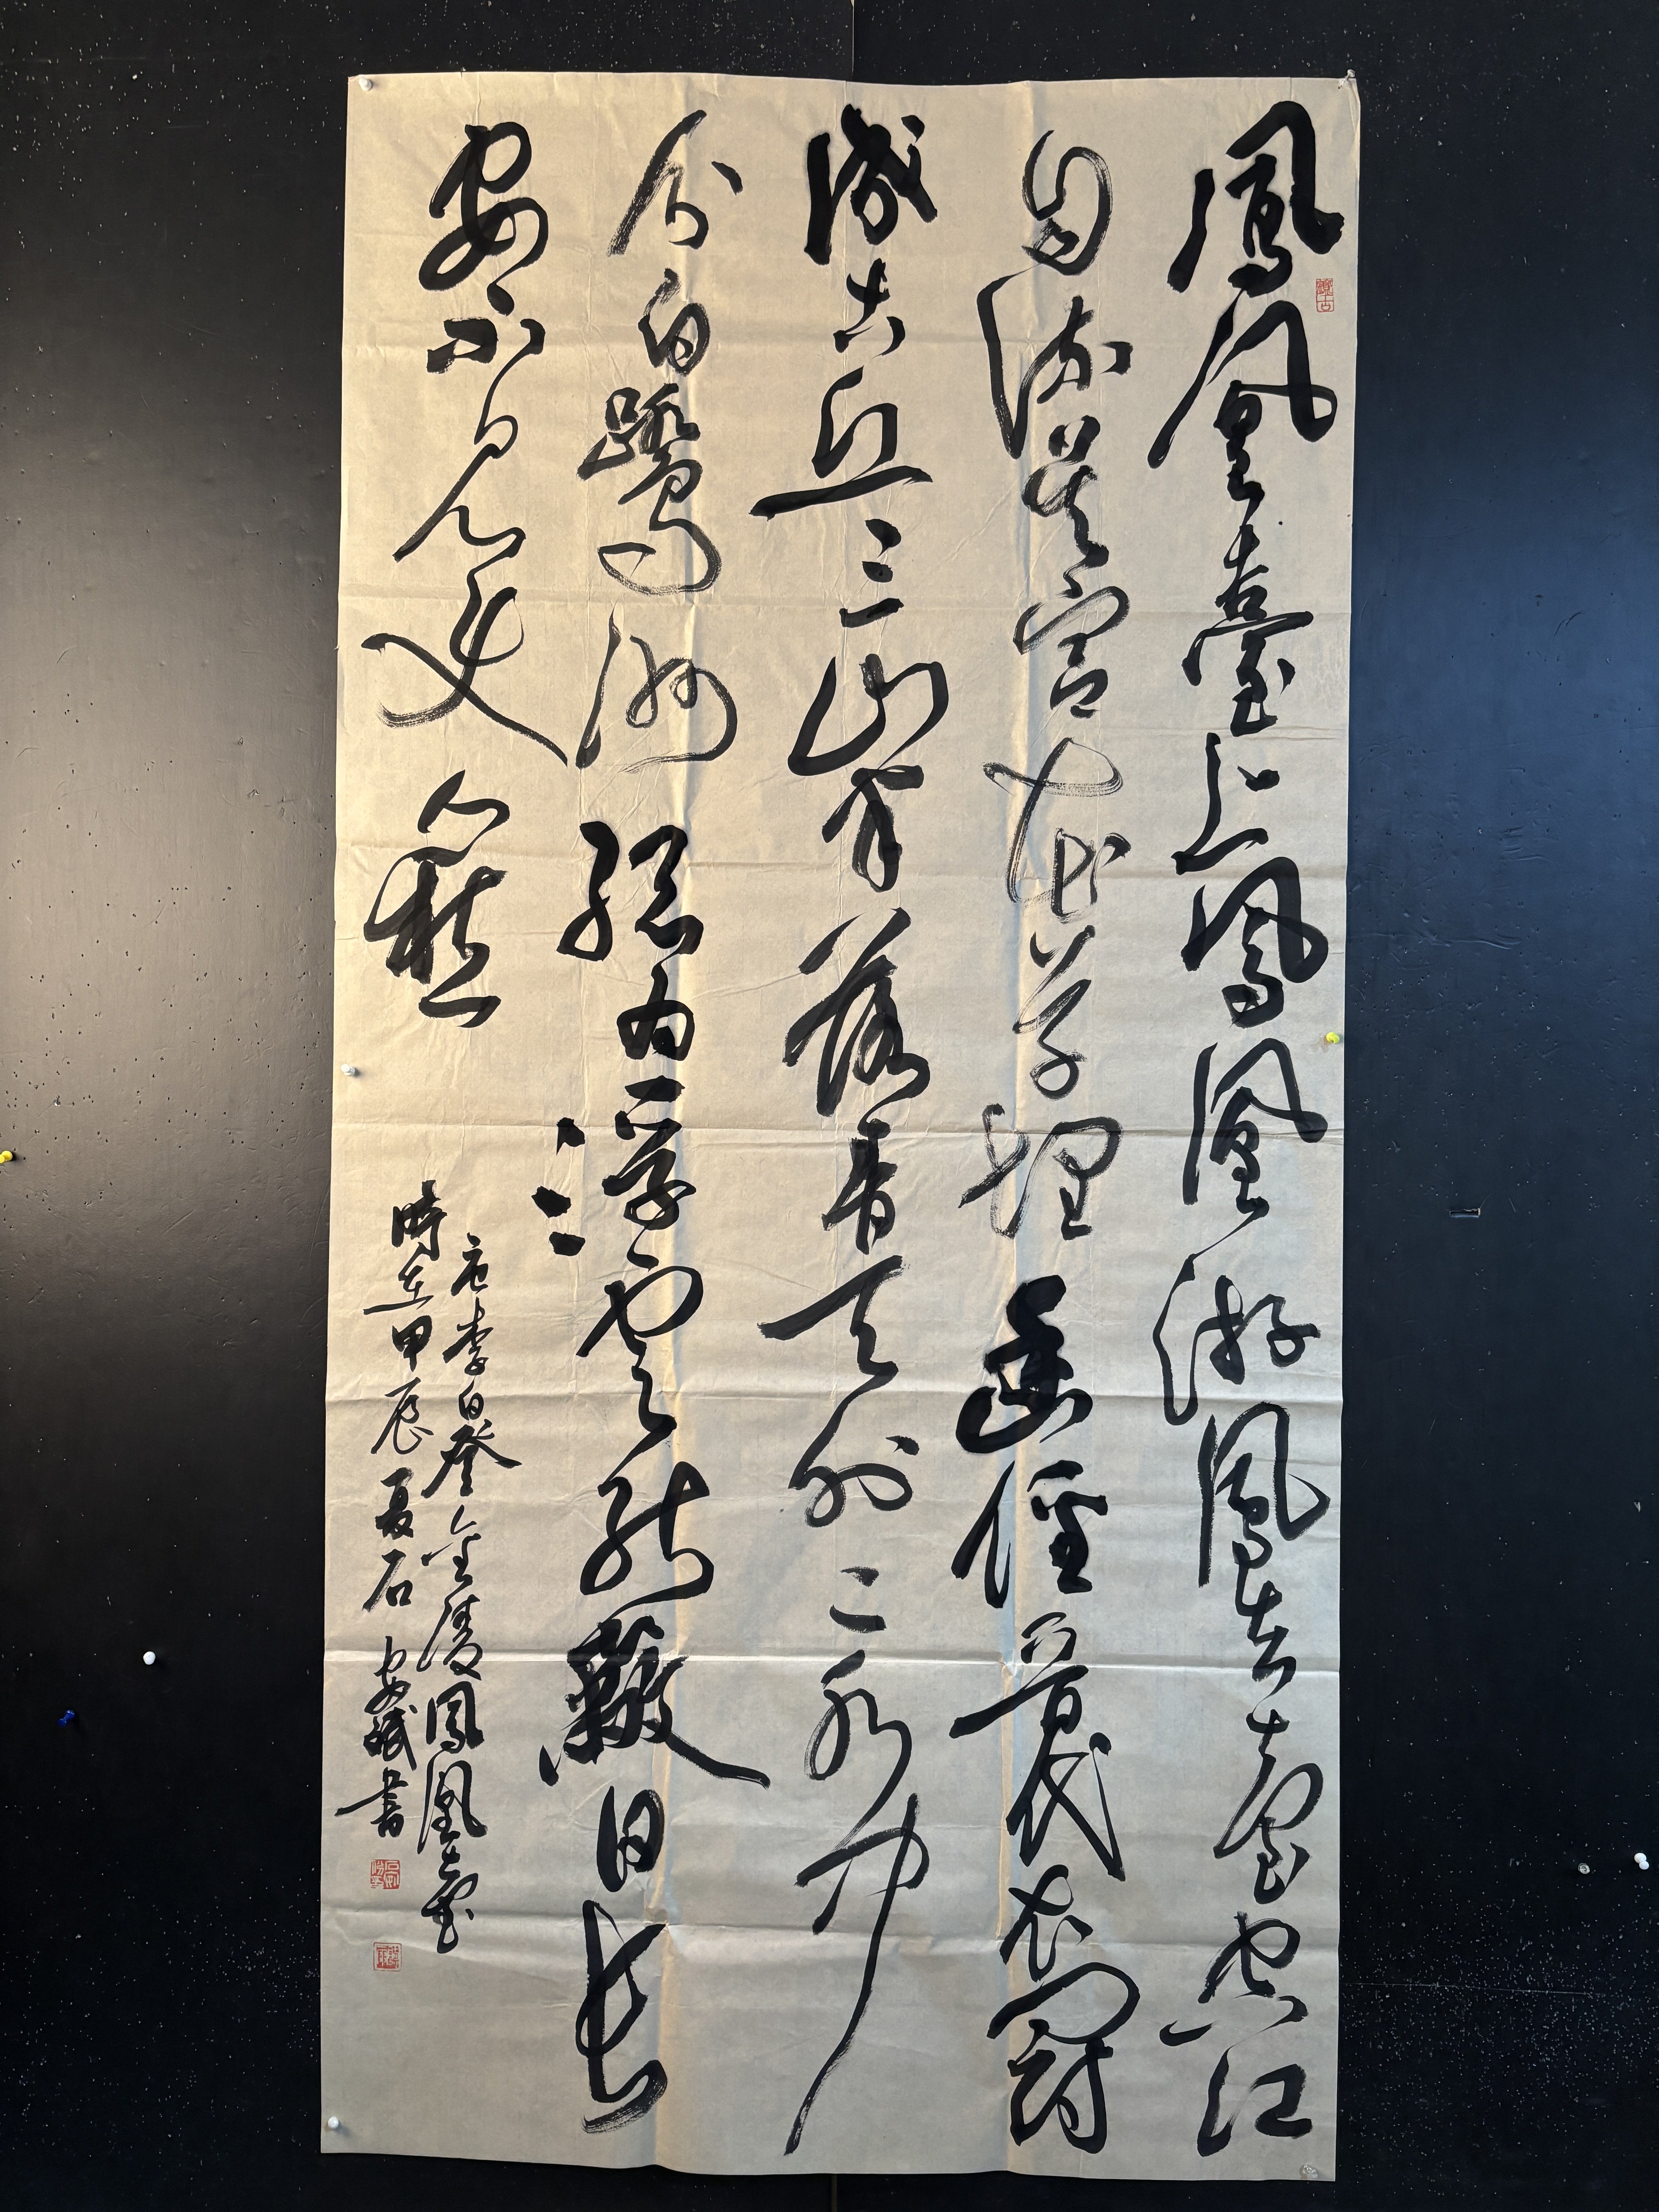 鳳凰臺上鳳凰游鳳去臺空江
自流吳宮花草埋幽徑晉代衣冠
成古丘三山半落青天外二水中
分白鷺洲總為浮雲能蔽日長
安不見使人愁
唐李白登金陵鳳凰臺
時在甲辰夏石安斌書